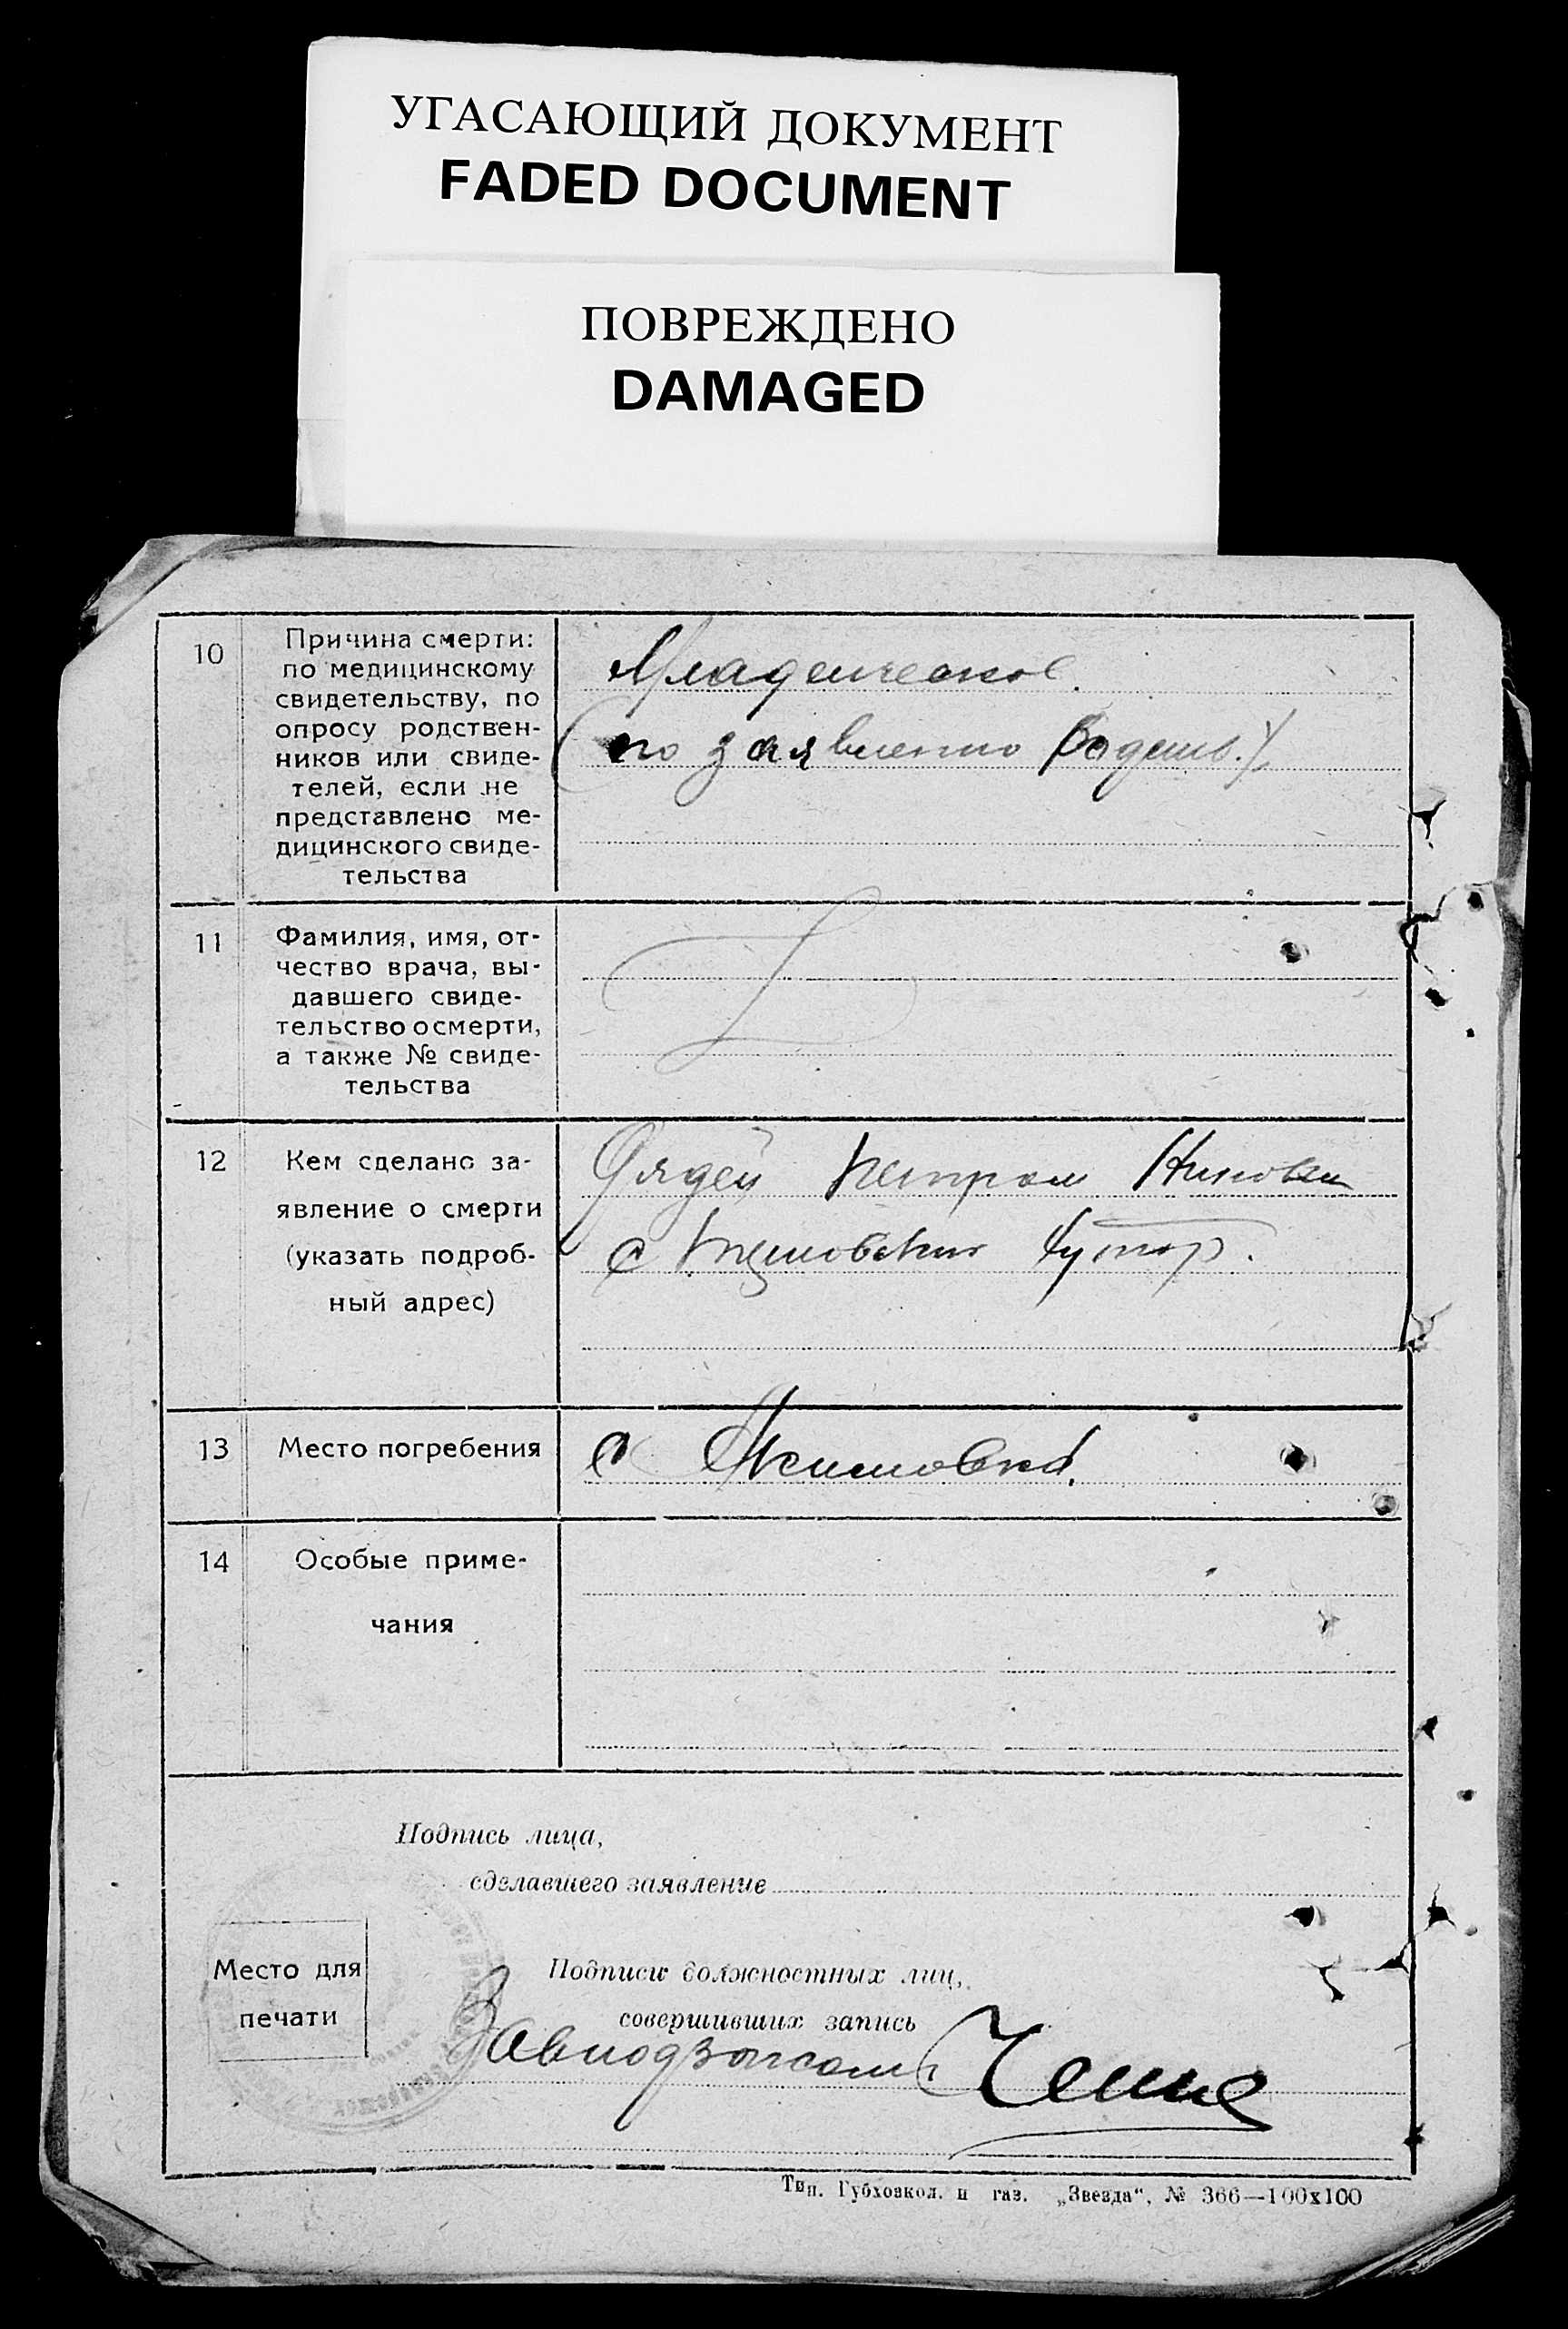 УГАСАЮЩИЙ ДОКУМЕНТ
FADED DOCUMENT
ПОВРЕЖДЕНО
DAMAGED
10
Причина смерти:
по медицинскому
свидетельству, по
опросу родствен-
ников или свиде-
телей, если не
представлено ме-
дицинского свиде-
тельства
Младенческое.
(по заявлению
11
Фамилия, имя, от-
чество врача, вы-
давшего свиде-
тельство о смерти,
а также № свиде-
тельства
12
Кем сделано за-
явление о смерти
(указать подроб-
ный адрес)
Дядей Петром
с хутор.
13
Место погребения
с
14
Особые приме-
чания
Подпись лица,
сделавшего заявление
Место для
печати
Подписи должностных лиц,
совершивших запись
Тип. Губхозкол. и газ. „Звезда“, № 366—100х100